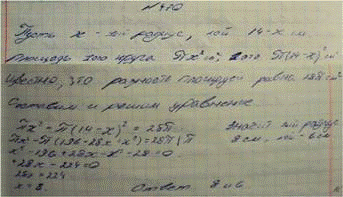 №470
Пусть x - 1ый радиус, 2ой 14-x см.
площадь 1ого круга πx² см², 2ого π(14-x)² см²
известно, что разность площадей равна 28π см²
Составим и решим уравнение
πx² - π(14-x)² = 28π
πx² - π(196-28x+x²) = 28π | π
x² - 196 + 28x - x² - 28 = 0
28x - 224 = 0
28x = 224
x = 8.
значит 1ый радиус
8 см, 2ой - 6 см
Ответ 8 и 6.